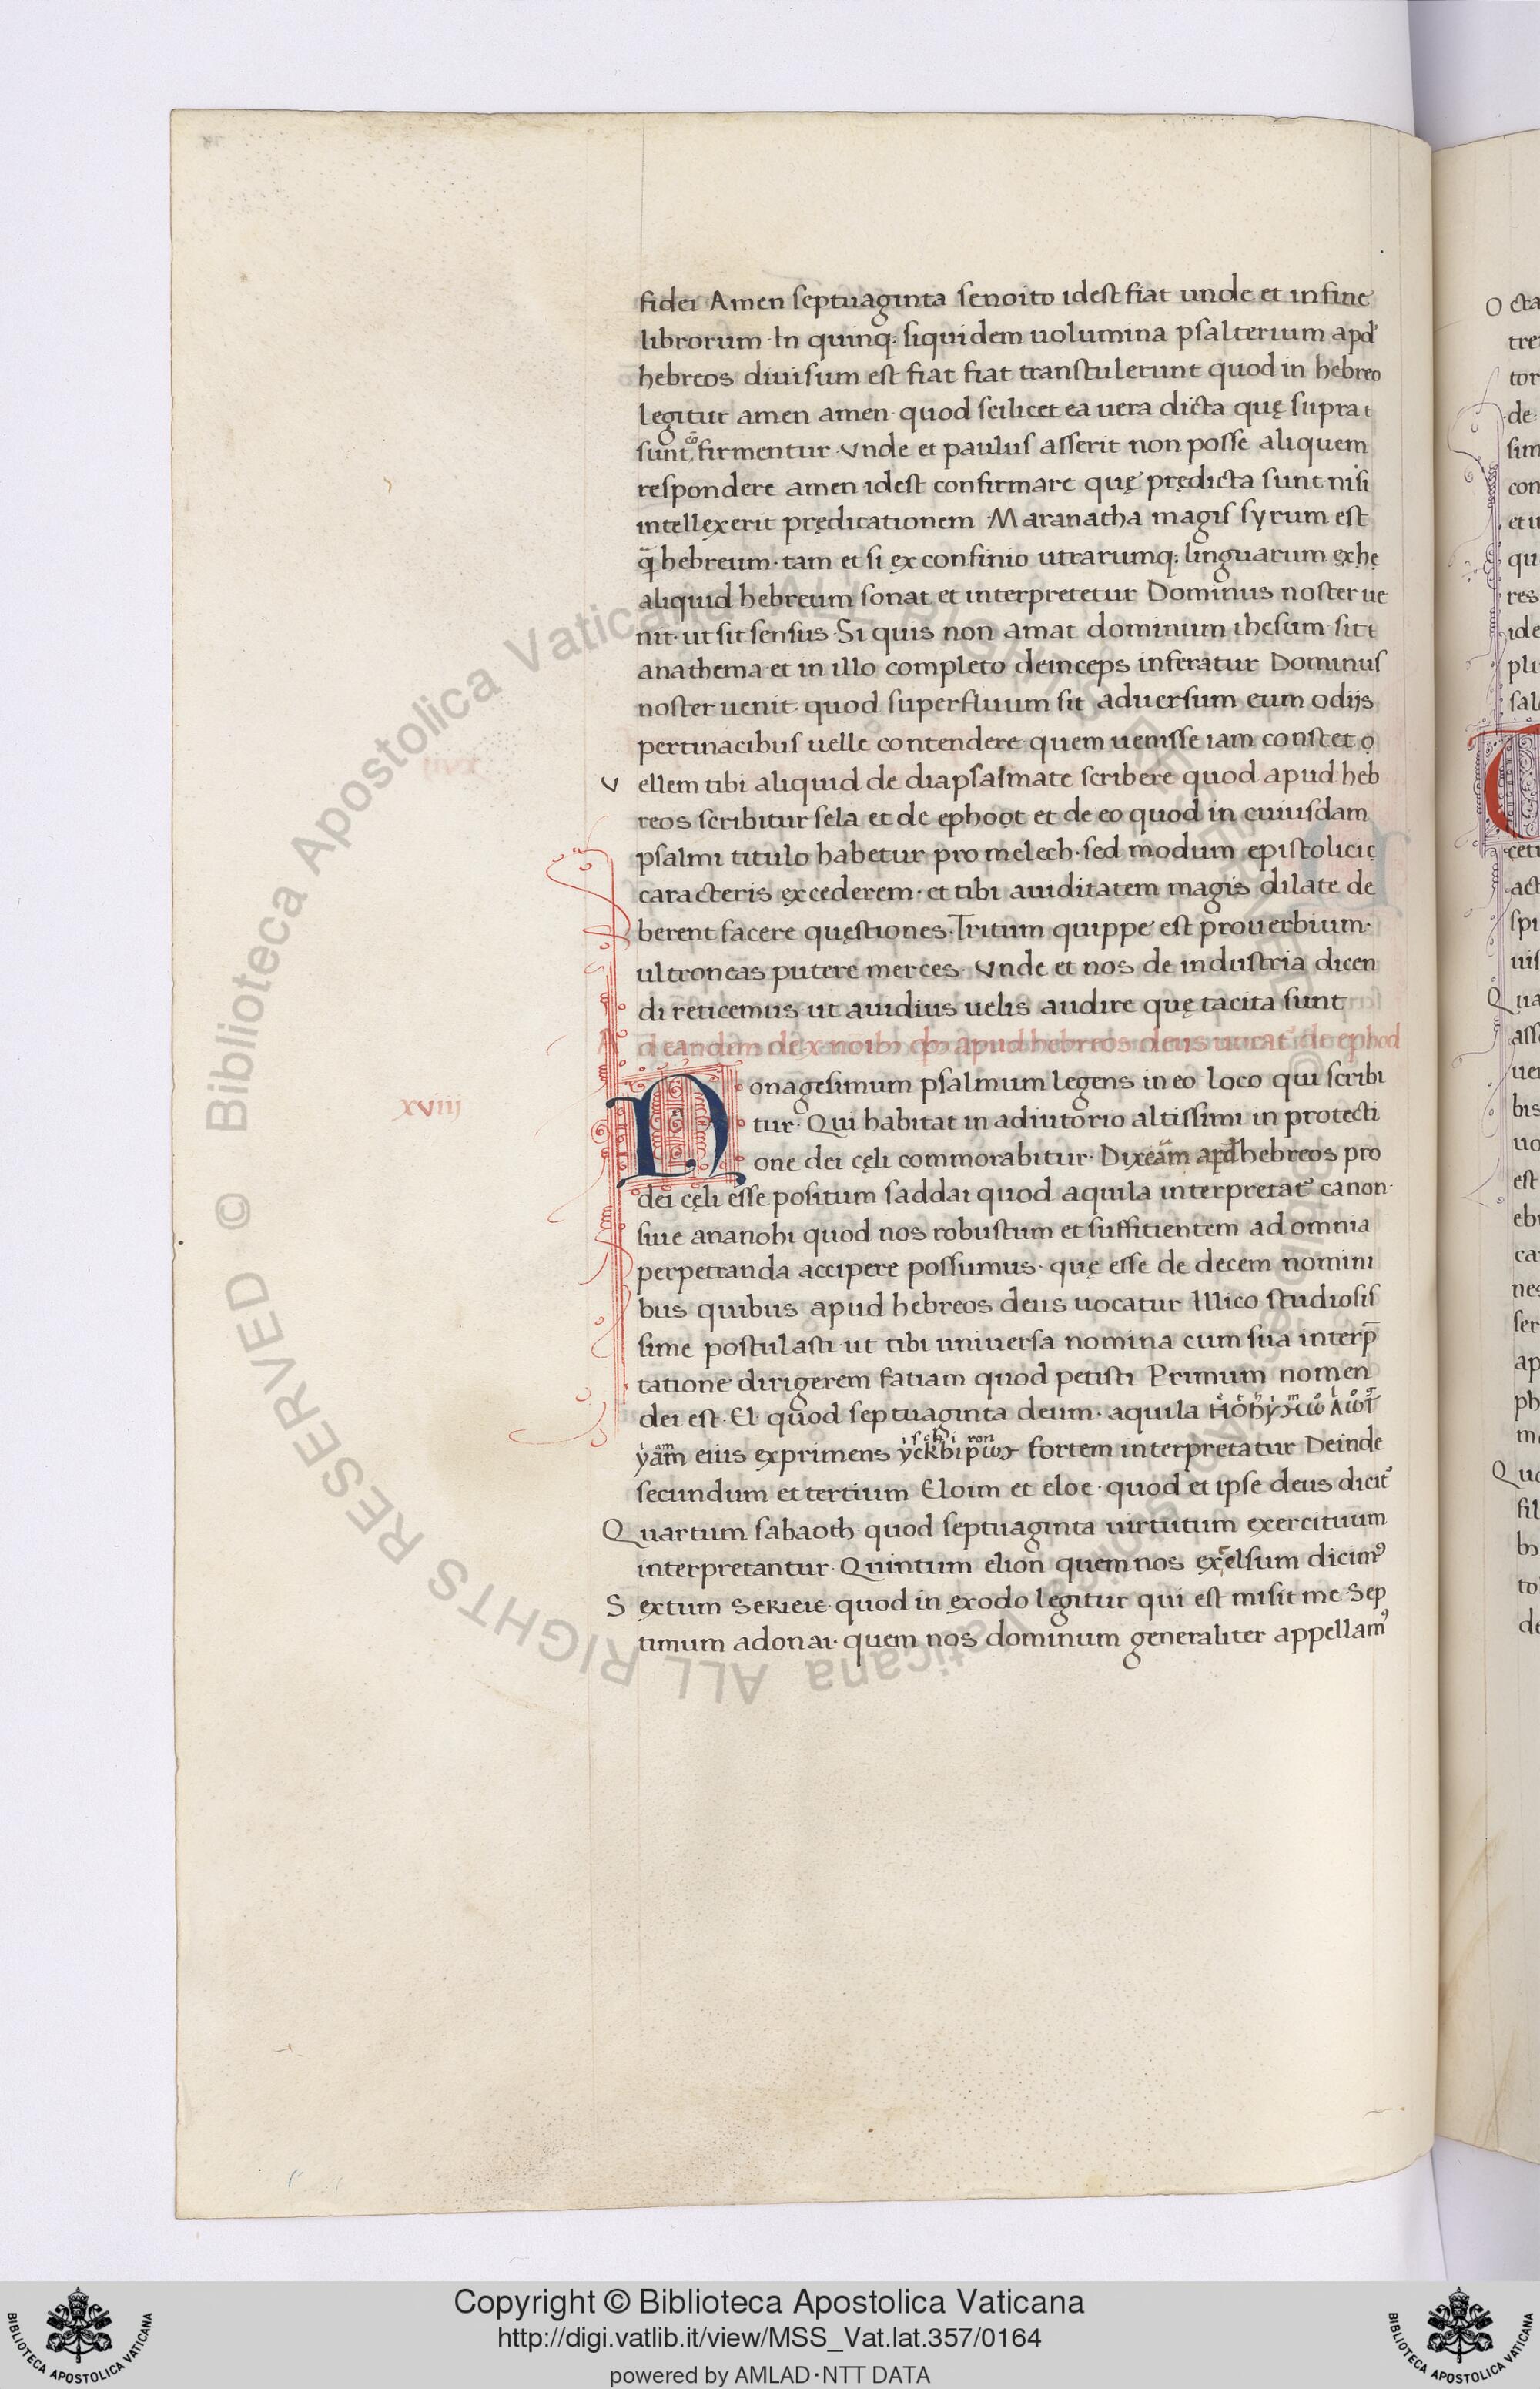 fidei Amen septuaginta senoito idest fiat unde et in fine
librorum. In quinq; siquidem uolumina psalterium apd
hebreos diuisum est fiat fiat transtulerunt quod in hebreo
legitur amen amen. quod scilicet ea uera dicta quę supra
sunt cō firmentur. Vnde et paulus asserit non posse aliquem
respondere amen idest confirmare quę prędicta sunt. nisi
intellexerit prędicationem. Maranatha magis syrum est
q̄ hebreum. tam et si ex confinio utrarumq; linguarum
aliquid hebreum sonat et interpretetur Dominus noster ue
nit. ut sit sensus. Si quis non amat dominum ihesum sit
anathema. et in illo completo deinceps inferatur Dominus
noster uenit. quod superfluum sit aduersum eum odijs
pertinacibus uelle contendere. quem uenisse iam constet
V ellem tibi aliquid de diapsalmate scribere quod apud heb
reos scribitur sela et de ephoot et de eo quod in cuiusdam
psalmi titulo habetur pro melech. sed modum epistolici
caracteris excederem. et tibi auiditatem magis dilate de
berent facere quęstiones. Tritum quippe est prouerbium.
ultroneas putere merces. Vnde et nos de industria dicen
di reticemus. ut auidius uelis audire quę tacita sunt
Ad eandem de x noibȝ apud hebreos deus uocat ephod
xviij
Nonagesimum psalmum legens in eo loco qui scribi
tur. Qui habitat in adiutorio altissimi in protecti
one dei cęli commorabitur. Dixeām apd hebreos pro
dei cęli esse positum saddai quod aquila interpretat̉ canon.
siue ananohi quod nos robustum et suffitientem ad omnia
perpetranda accipere possumus. quę esse de decem nomini
bus quibus apud hebreos deus uocatur Illico studiosis
sime postulasti. ut tibi uniuersa nomina cum sua interp̄
tatione dirigerem fatiam quod petisti Primum nomen
dei est. El. quod septuaginta deum. aquila
yam eius exprimens fortem interpretatur Deinde
secundum et tertium Eloim et eloe. quod et ipse deus dicit̉
Quartum sabaoth. quod septuaginta uirtutum exercituum
interpretantur. Quintum elion quem nos excelsum dicim᾽
Sextum seRieie. quod in exodo legitur qui est misit me. Sep
timum adonai. quem nos dominum generaliter appellam᾽
Copyright © Biblioteca Apostolica Vaticana
http://digi.vatlib.it/view/MSS_Vat.lat.357/0164
powered by AMLAD·NTT DATA
BIBLIOTECA APOSTOLICA VATICANA
BIBLIOTECA APOSTOLICA VATICANA
© Biblioteca Apostolica Vaticana ALL RIGHTS RESERVED